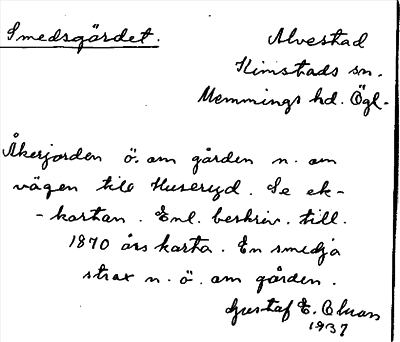 Smedsgärdet.
Alvestad
Kimstads sn.
Memmings hd. Ögl.
Åkerjorden ö. om gården n. om
vägen till Huseryd. Se ek-
-kartan. Enl. beskriv. till.
1870 års karta. En smedja
strax n. ö. om gården.
Gustaf E.
1937